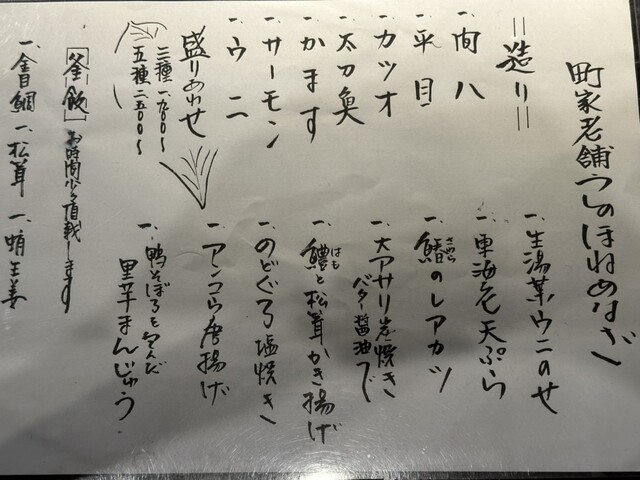 町家老舗つしのほねめなざ
＝造り＝
一、間八
一、平目
一、カツオ
一、太刀魚
一、かます
一、サーモン
一、ウニ
盛りあわせ
三種 一、九〇〇〜
五種 二五〇〇〜
「釜飯」お時間少々頂戴します
一、金目鯛 一、松茸 一、蛸生姜
一、生湯葉ウニのせ
一、車海老天ぷら
一、鰆のレアカツ
さわら
一、大アサリ炭焼き
バター醤油で
一、鱧と松茸かき揚げ
はも
一、のどぐろ塩焼き
一、アンコウ唐揚げ
一、鴨そぼろを包んだ
里芋まんじゅう